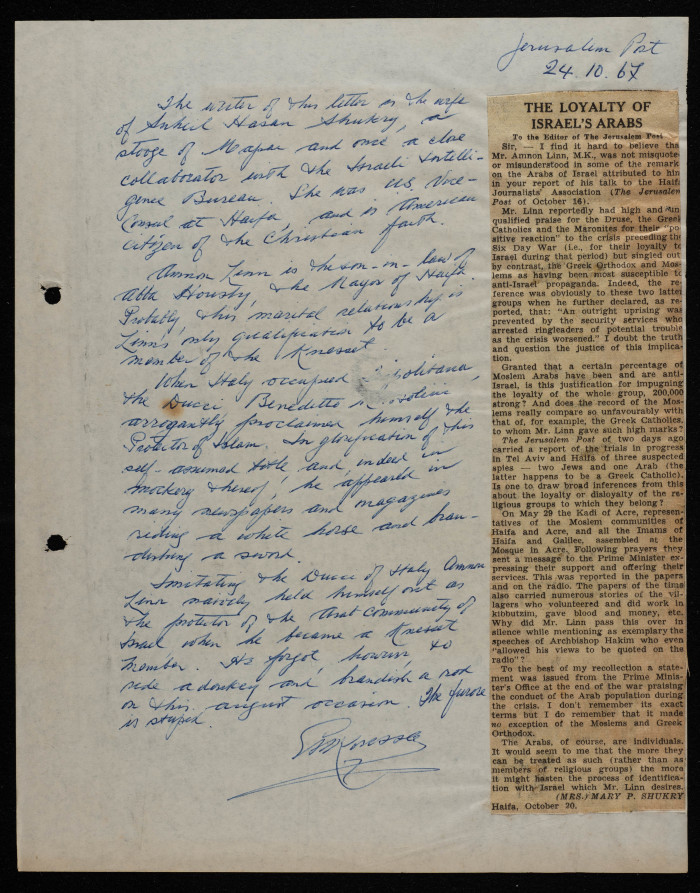 Jerusalem Post
24.10.67
The writer of this letter is the wife
of Suheil Hasan Shukry, a
stooge of Mapai and once a close
collaborator with the Israeli Intelli-
gence Bureau. She was US Vice-
Consul at Haifa, and is American
citizen of the Christian faith.
Amnon Linn is the son-in-law of
Abba Houshy, the Mayor of Haifa.
Probably this marital relationship is
Linn's only qualification to be a
member of the Knesset.
When Italy occupied
the Ducci Benedetto
arrogantly proclaimed himself the
Protector of Islam. In glorification of this
self-assumed title and, indeed in
mockery thereof, he appeared in
many newspapers and magazines
riding a white horse and bran-
dishing a sword.
Imitating the Duce of Italy Amnon
Linn naively held himself out as
the protector of the Arab Community of
Israel when he became a Knesset
member. He forgot, however, to
ride a donkey and brandish a rod
on this august occasion. The
is stupid.
THE LOYALTY OF
ISRAEL'S ARABS
To the Editor of The Jerusalem Post
Sir, — I find it hard to believe tha
Mr. Amnon Linn, M.K., was not misquote
or misunderstood in some of the remark
on the Arabs of Israel attributed to him
in your report of his talk to the Haifa
Journalists' Association (The Jerusalem
Post of October 16).
Mr. Linn reportedly had high and un
qualified praise for the Druse, the Greek
Catholics and the Maronites for their "po
sitive reaction" to the crisis preceding the
Six Day War (i.e., for their loyalty to
Israel during that period) but singled out
by contrast, the Greek Orthodox and Mos-
lems as having been most susceptible to
anti-Israel propaganda. Indeed, the re
ference was obviously to these two latter
groups when he further declared, as re-
ported, that: "An outright uprising was
prevented by the security services who
arrested ringleaders of potential trouble
as the crisis worsened." I doubt the truth
and question the justice of this implica-
tion.
Granted that a certain percentage of
Moslem Arabs have been and are anti-
Israel, is this justification for impugning
the loyalty of the whole group, 200,000
strong? And does the record of the Mos-
lems really compare so unfavourably with
that of, for example, the Greek Catholics,
to whom Mr. Linn gave such high marks?
The Jerusalem Post of two days ago
carried a report of the trials in progress
in Tel Aviv and Haifa of three suspected
spies — two Jews and one Arab (the
latter happens to be a Greek Catholic).
Is one to draw broad inferences from this
about the loyalty or disloyalty of the re-
ligious groups to which they belong?
On May 29 the Kadi of Acre, represen-
tatives of the Moslem communities of
Haifa and Acre, and all the Imams of
Haifa and Galilee, assembled at the
Mosque in Acre. Following prayers they
sent a message to the Prime Minister ex-
pressing their support and offering their
services. This was reported in the papers
and on the radio. The papers of the time
also carried numerous stories of the vil-
lagers who volunteered and did work in
kibbutzim, gave blood and money, etc.
Why did Mr. Linn pass this over in
silence while mentioning as exemplary the
speeches of Archbishop Hakim who even
"allowed his views to be quoted on the
radio"?
To the best of my recollection a state-
ment was issued from the Prime Minis-
ter's Office at the end of the war praising
the conduct of the Arab population during
the crisis. I don't remember its exact
terms but I do remember that it made
no exception of the Moslems and Greek
Orthodox.
The Arabs, of course, are individuals.
It would seem to me that the more they
can be treated as such (rather than as
members of religious groups) the more
it might hasten the process of identifica-
tion with Israel which Mr. Linn desires.
(MRS.) MARY P. SHUKRY
Haifa, October 20.